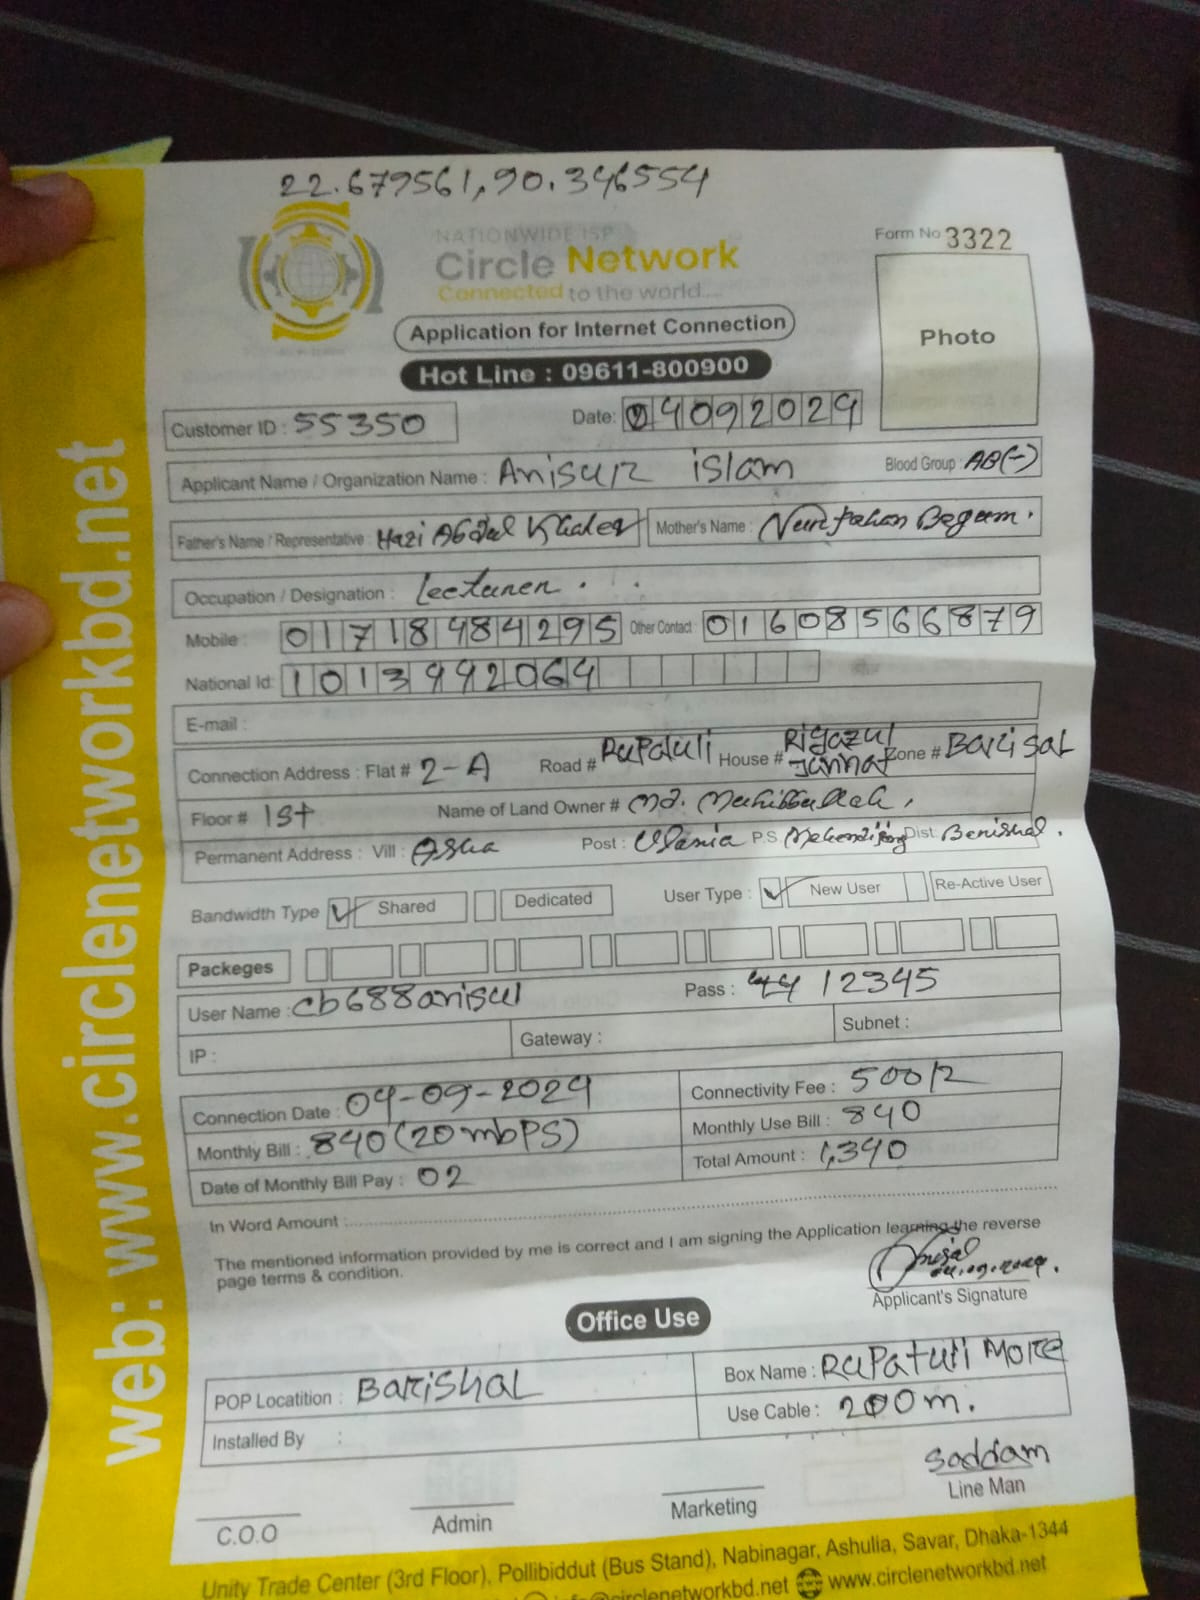 22.679561,90.346554
NATIONWIDE ISP
Circle Network
Connected to the world....
Form No 3322
Photo
Application for Internet Connection
Hot Line : 09611-800900
Customer ID : 55350
Date: 04092024
Applicant Name / Organization Name : Anisur islam
Blood Group : AB(-)
Father's Name / Representative : Hazi Abdul Khaleq
Mother's Name : Nurjahan Begum.
Occupation / Designation : Lecturer .
Mobile : 01718484295 Other Contact : 01608566879
National Id: 1013992064
E-mail :
Connection Address : Flat # 2-A Road # RuPatuli House # Riyazul Jannat Zone # Barisal
Floor # 1st Name of Land Owner # Md.
Permanent Address : Vill : Asha Post : Ulania P.S Dist. Barishal.
Bandwidth Type Shared Dedicated User Type : New User Re-Active User
Packeges
User Name : cb688anisul Pass : 12345
IP : Gateway : Subnet :
Connection Date : 04-09-2024 Connectivity Fee : 500/
Monthly Bill : 840 (20mbPS) Monthly Use Bill : 840
Date of Monthly Bill Pay : 02 Total Amount : 1,340
In Word Amount :
The mentioned information provided by me is correct and I am signing the Application learning the reverse
page terms & condition.
04.09.2024.
Applicant's Signature
Office Use
POP Locatition : Barishal Box Name : RuPatuli More
Installed By : Use Cable : 200m.
Saddam
C.O.O Admin Marketing Line Man
Unity Trade Center (3rd Floor), Pollibiddut (Bus Stand), Nabinagar, Ashulia, Savar, Dhaka-1344
info@circlenetworkbd.net www.circlenetworkbd.net
web: www.circlenetworkbd.net